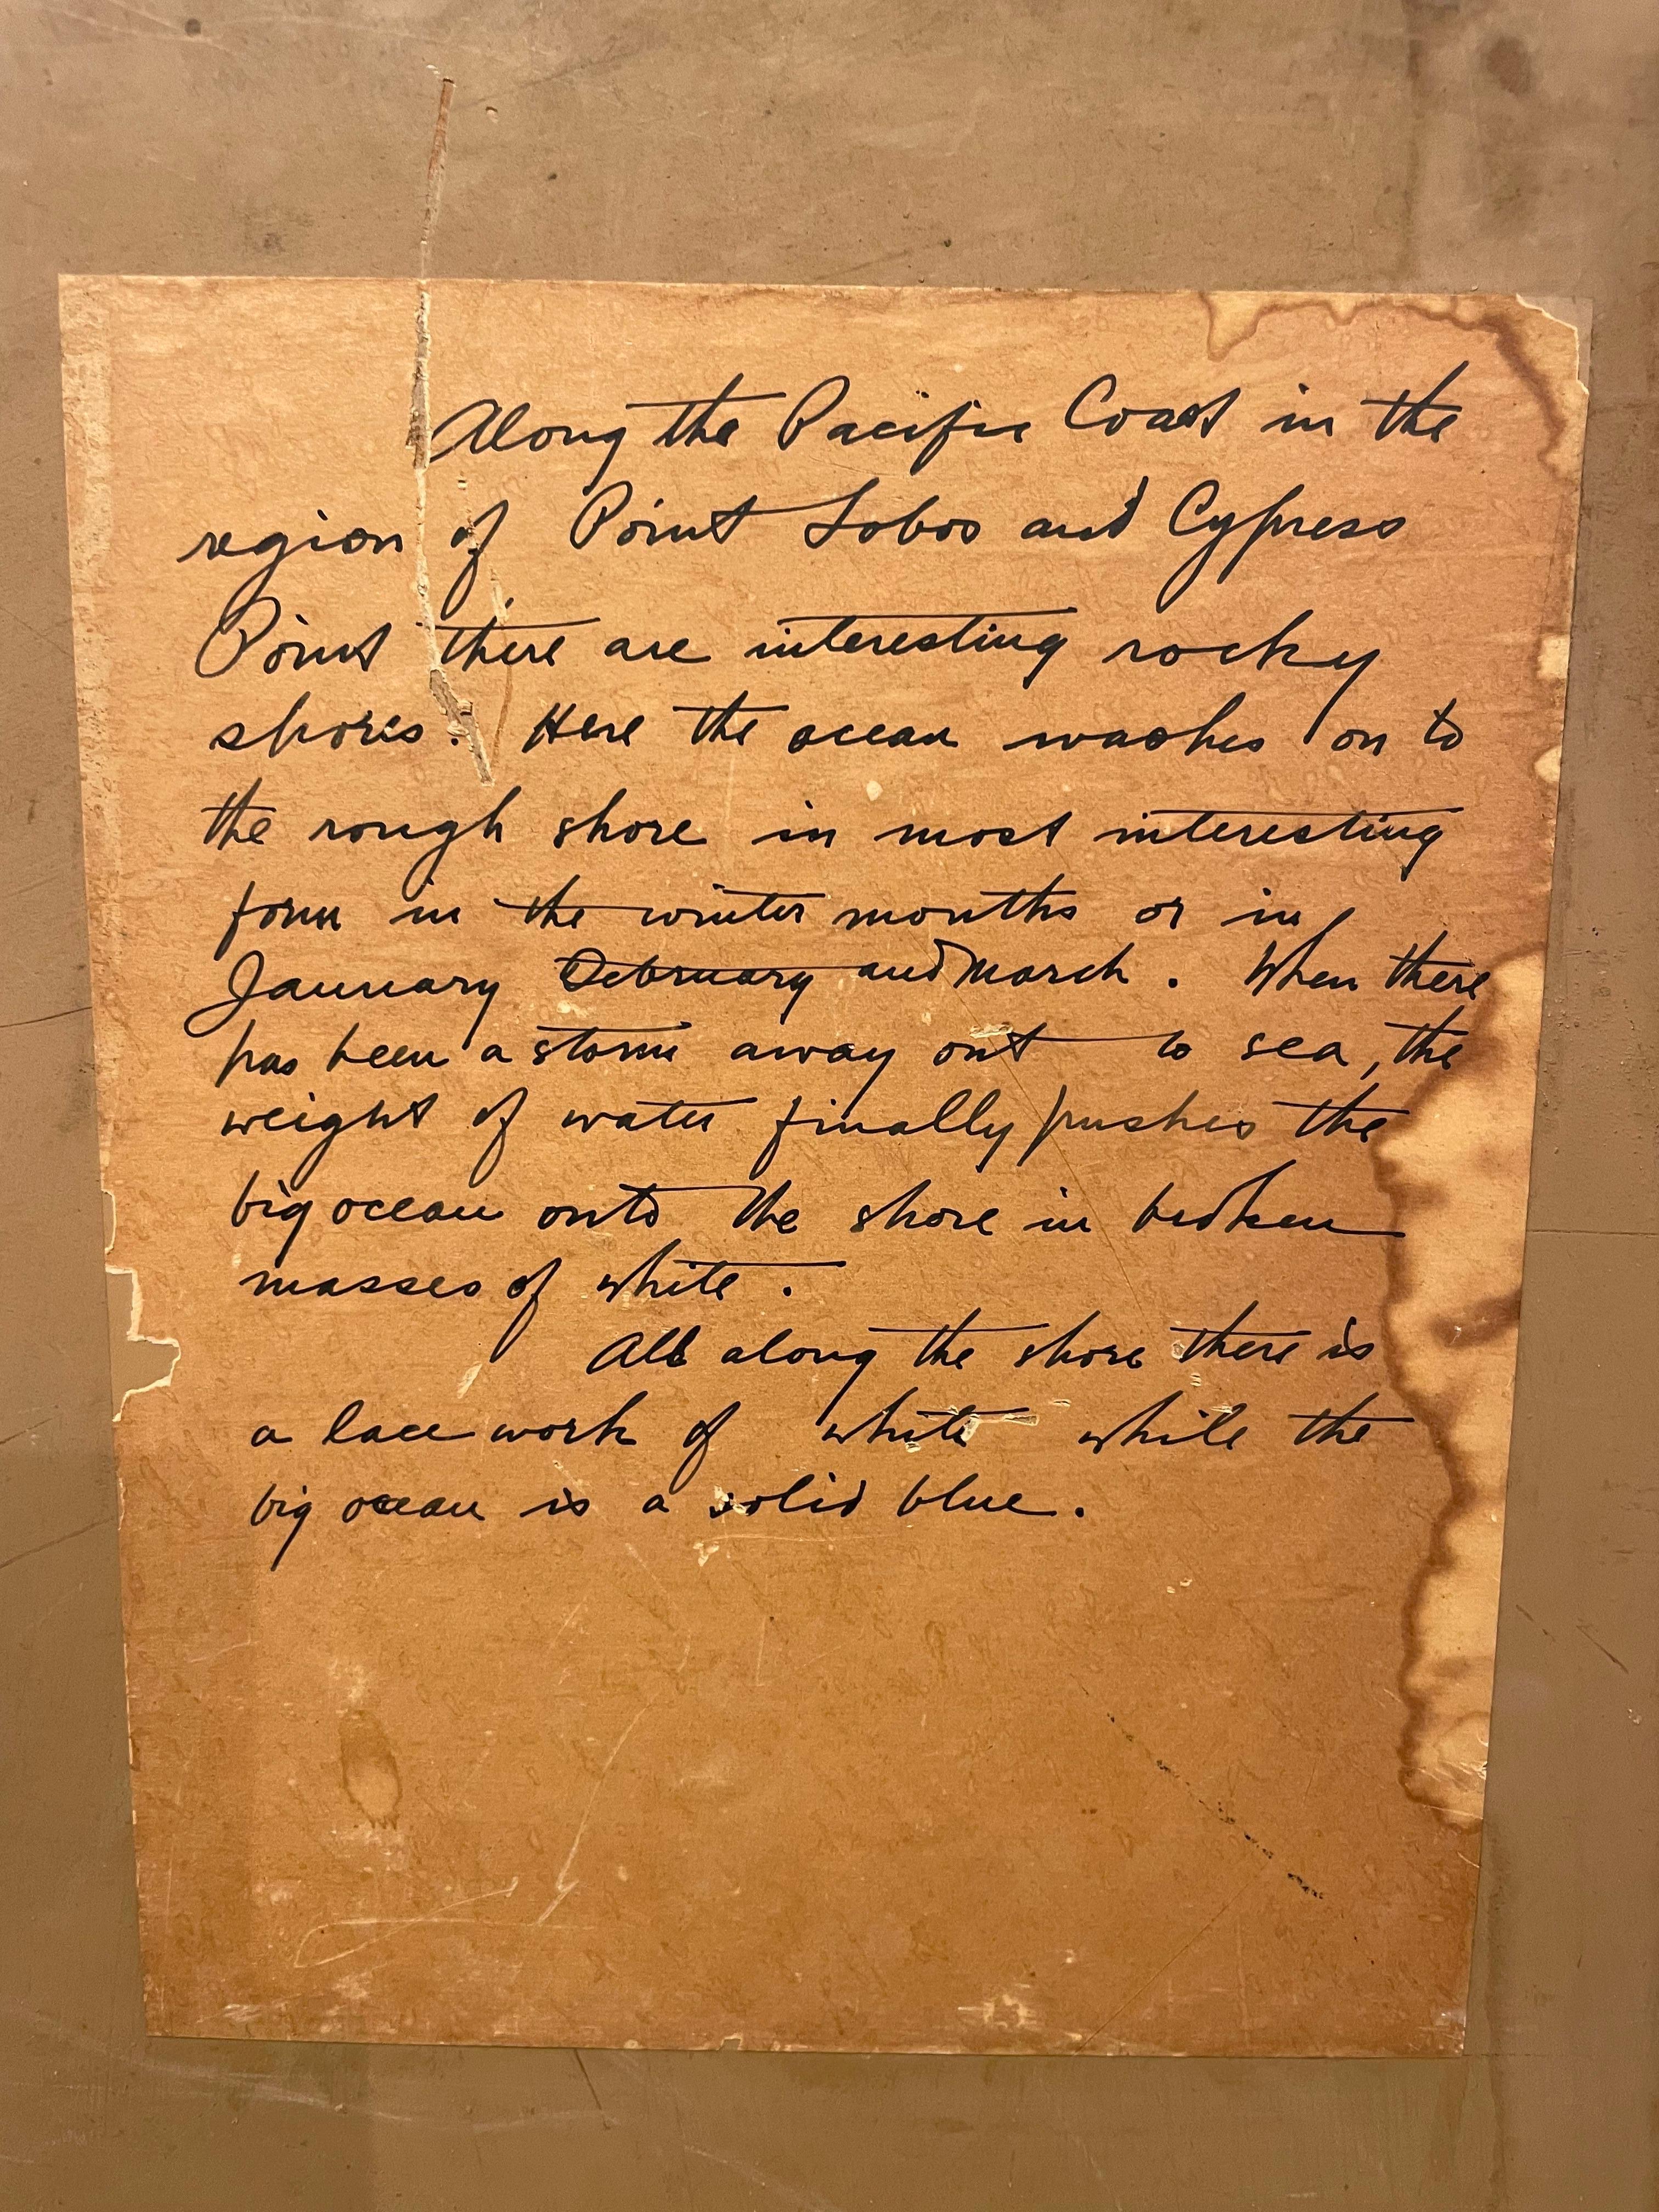 Along the Pacific Coast in the
region of Point Lobos and Cypress
Point there are interesting rocky
shores. Here the ocean washes on to
the rough shore in most interesting
form in the winter months or in
January February and March. When there
has been a storm away out to sea, the
weight of water finally pushes the
big ocean onto the shore in broken
masses of white.
All along the shore there is
a lace work of white while the
big ocean is a solid blue.